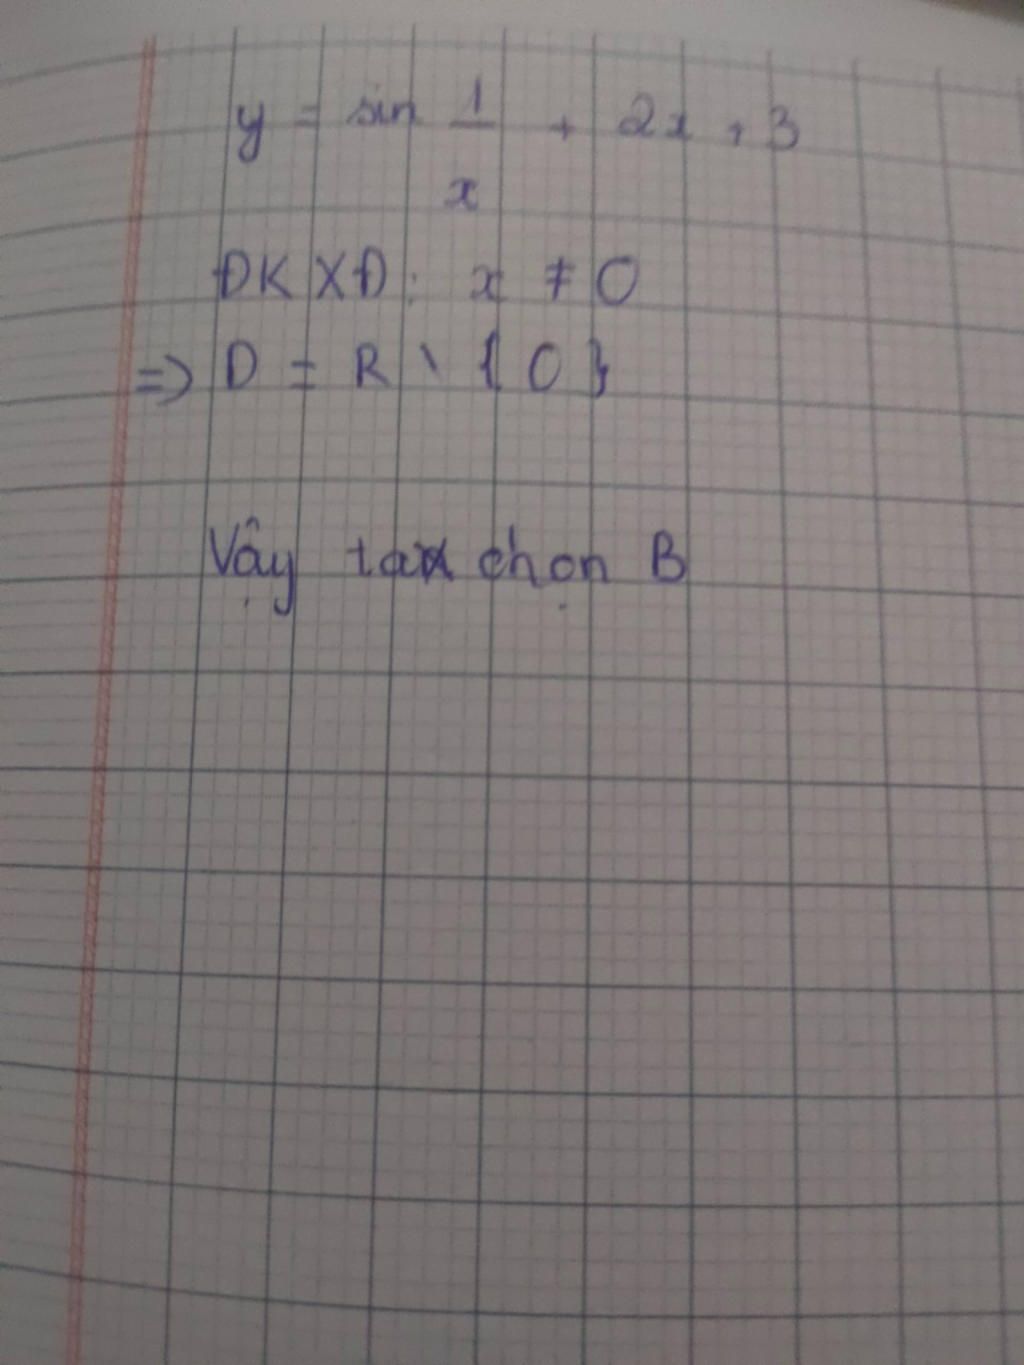 y = sin 1/x + 2x + 3
ĐKXĐ: x ≠ 0
=> D = R \ { 0 }
Vậy ta chọn B